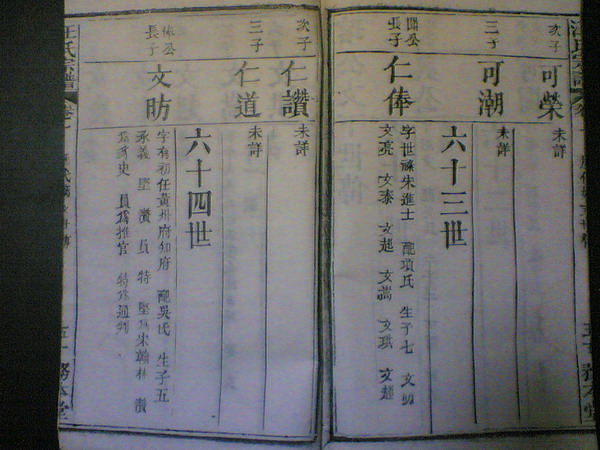 汪氏宗譜
次子 可榮 未詳
三子 可潮 未詳
六十三世
長子 仁俸 字世祿朱進士 配項氏 生子七 文昉
文亮 文泰 文起 文 文琪 文超
五十 務本堂
次子 仁讚 未詳
三子 仁道 未詳
六十四世
俸公
長子 文昉 字有初任黃州府知府 配吳氏 生子五
承義 堅 員 特 堅為宋翰林
史 員為推官 特為通判
汪氏宗譜 卷
五十一 務本堂